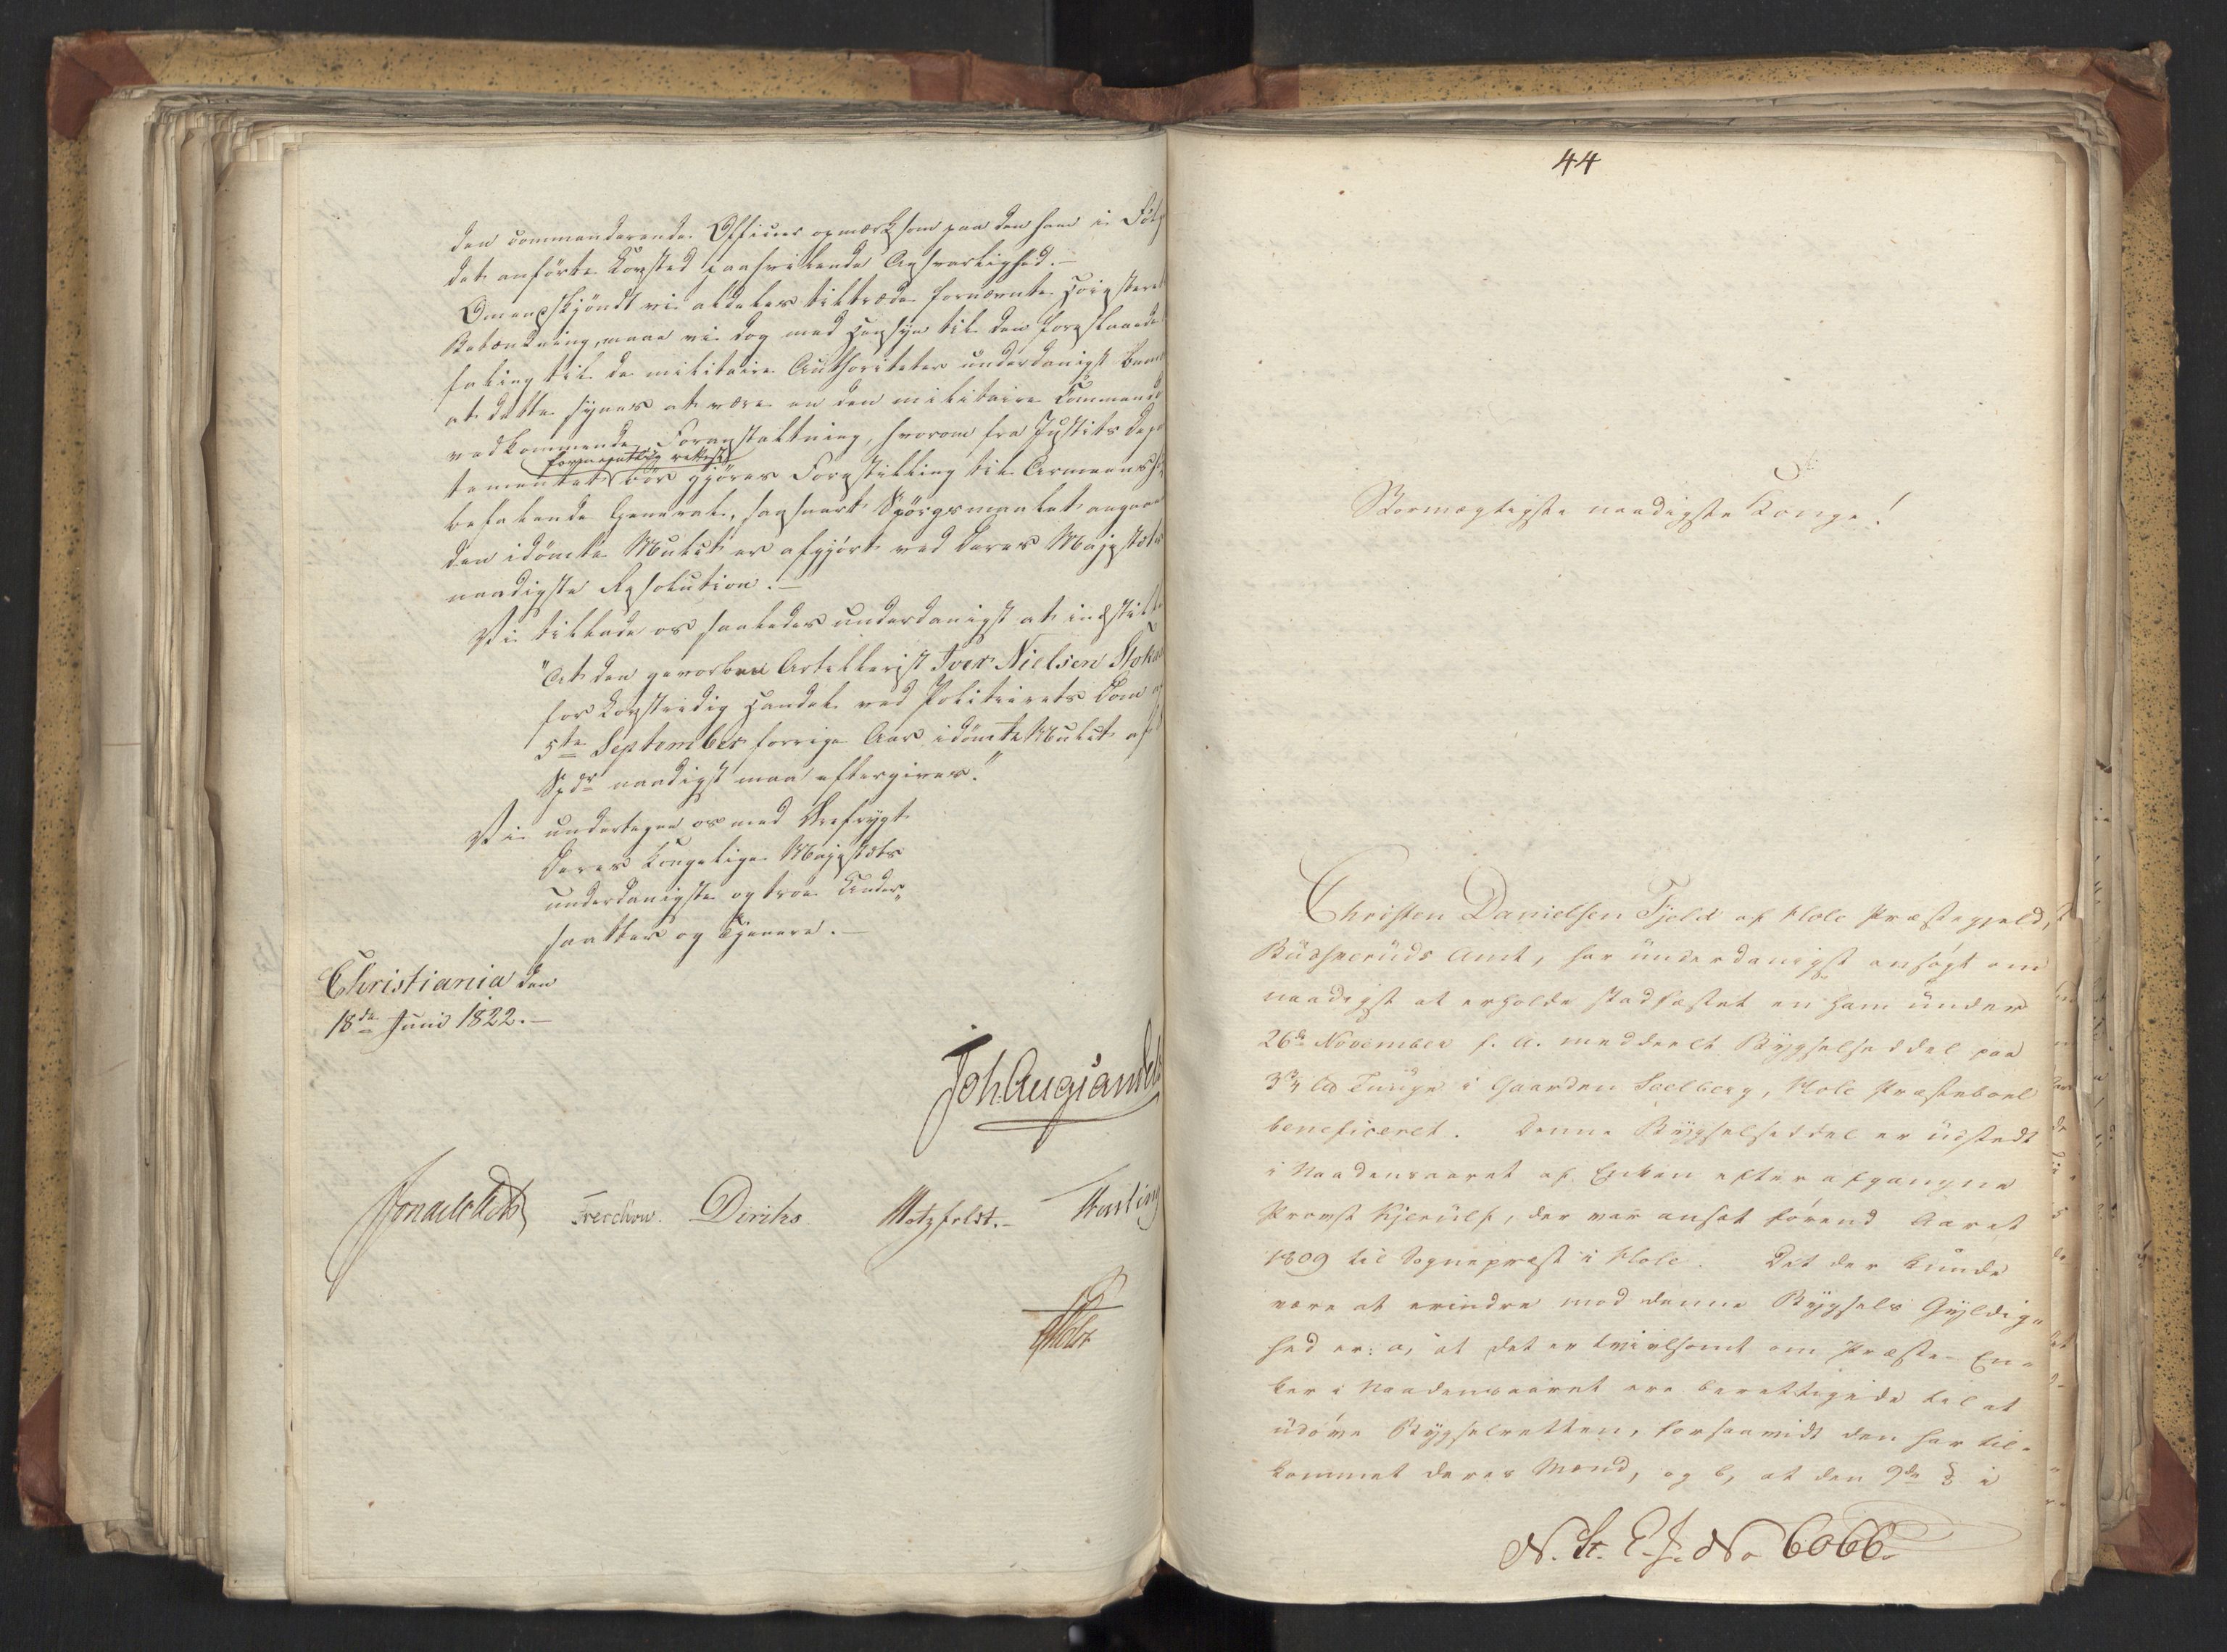 den commanderende Officier opmærksom paa den ham i
det anførte Lovsted paahvilende Ansvarlighed.—
Omendskjöndt vi aldeles tiltræde fornævnte Höiesteret
Betænkning, maae vi dog med Hensyn til den foreslaaede
faling til de militaire Authoriteter underdanigst
at dette synes at være en den militaire Commando
vedkommende Foranstaltning, hvorom fra Justits Depar
formeentlig rettest
tementet bör gjöres Forestilling til Armeens
befalende General, saasnart Spörgsmaalet angaaende
den idömte Mulct er afgjört ved Deres Majestæts
naadigste Resolution.—
Vi tillade os saaledes underdanigst at indstille
"At den gevorbne Artillerist Iver Nielsen
for Lovstridig Handel ved Politierets Dom
5te September forrige Aar idömte Mulct af
Spdr naadigst maa eftergives."
Vi undertegne os med Ærefrygt
Deres Kongelige Majestæts
underdanigste og troe Under„
saatter og Tjenere.—
Christiania den
18de Juni 1822.—
Joh. Aug. Sandels
Treschow. Diriks Motzfeldt.—
Holst
44
Stormægtigste naadigste Konge!
Christen Danielsen Fjeld af Hole Præstegjeld,
Budskeruds Amt, har underdanigst ansögt om
naadigst at erholde stadfæstet en ham under
26de November f. A. meddeelt Bygselseddel paa
3¾ Lb Tunge i Gaarden Soelberg, Hole Præsteboel
beneficeret. Denne Bygselseddel er udstedt
i Naadensaaret af Enken efter afgangne
Provst Kjerulf, der var ansat förend Aaret
1809 til Sognepræst i Hole. Det der kunde
være at erindre mod denne Bygsels Gyldig„
hed er: a, at det er tvivlsomt om Præste-En-
ker i Naadensaaret ere berettigede til at
udöve Bygselretten, forsaavidt den har til-
kommet deres Mænd, og b, at den 9de § i
N. St. E. J. No 6066.